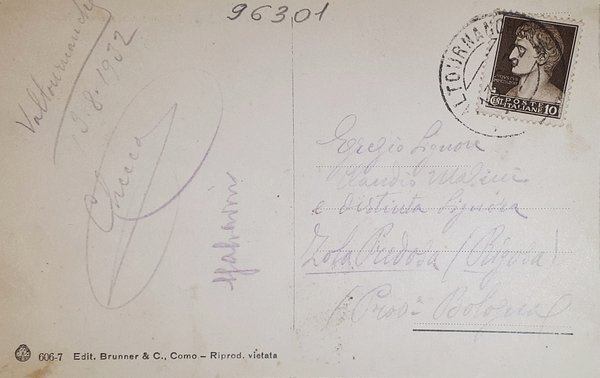 96301
Valtournanche
9.8.1932
VALTOURNANC
POSTE
ITALIANE
CENT. 10
Egregio Signore
Claudio
e distinta Signora
Zola Predosa (
(Prov. Bologna)
606-7 Edit. Brunner & C., Como – Riprod. vietata